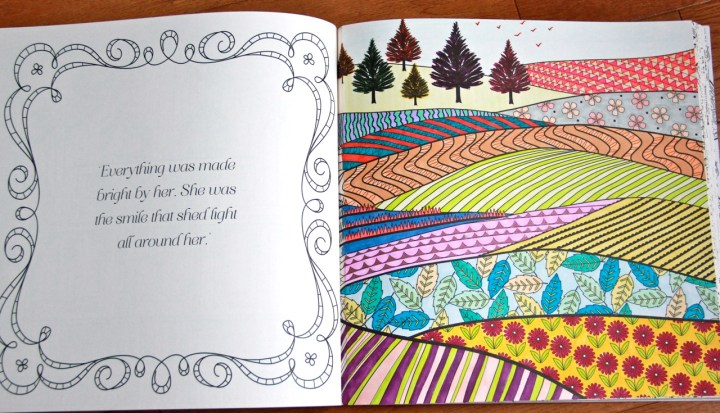 'Everything was made
bright by her. She was
the smile that shed light
all around her.'